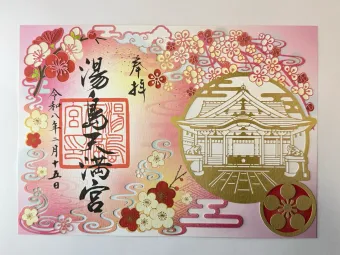 奉拝
湯島天満宮
令和八年二月十五日